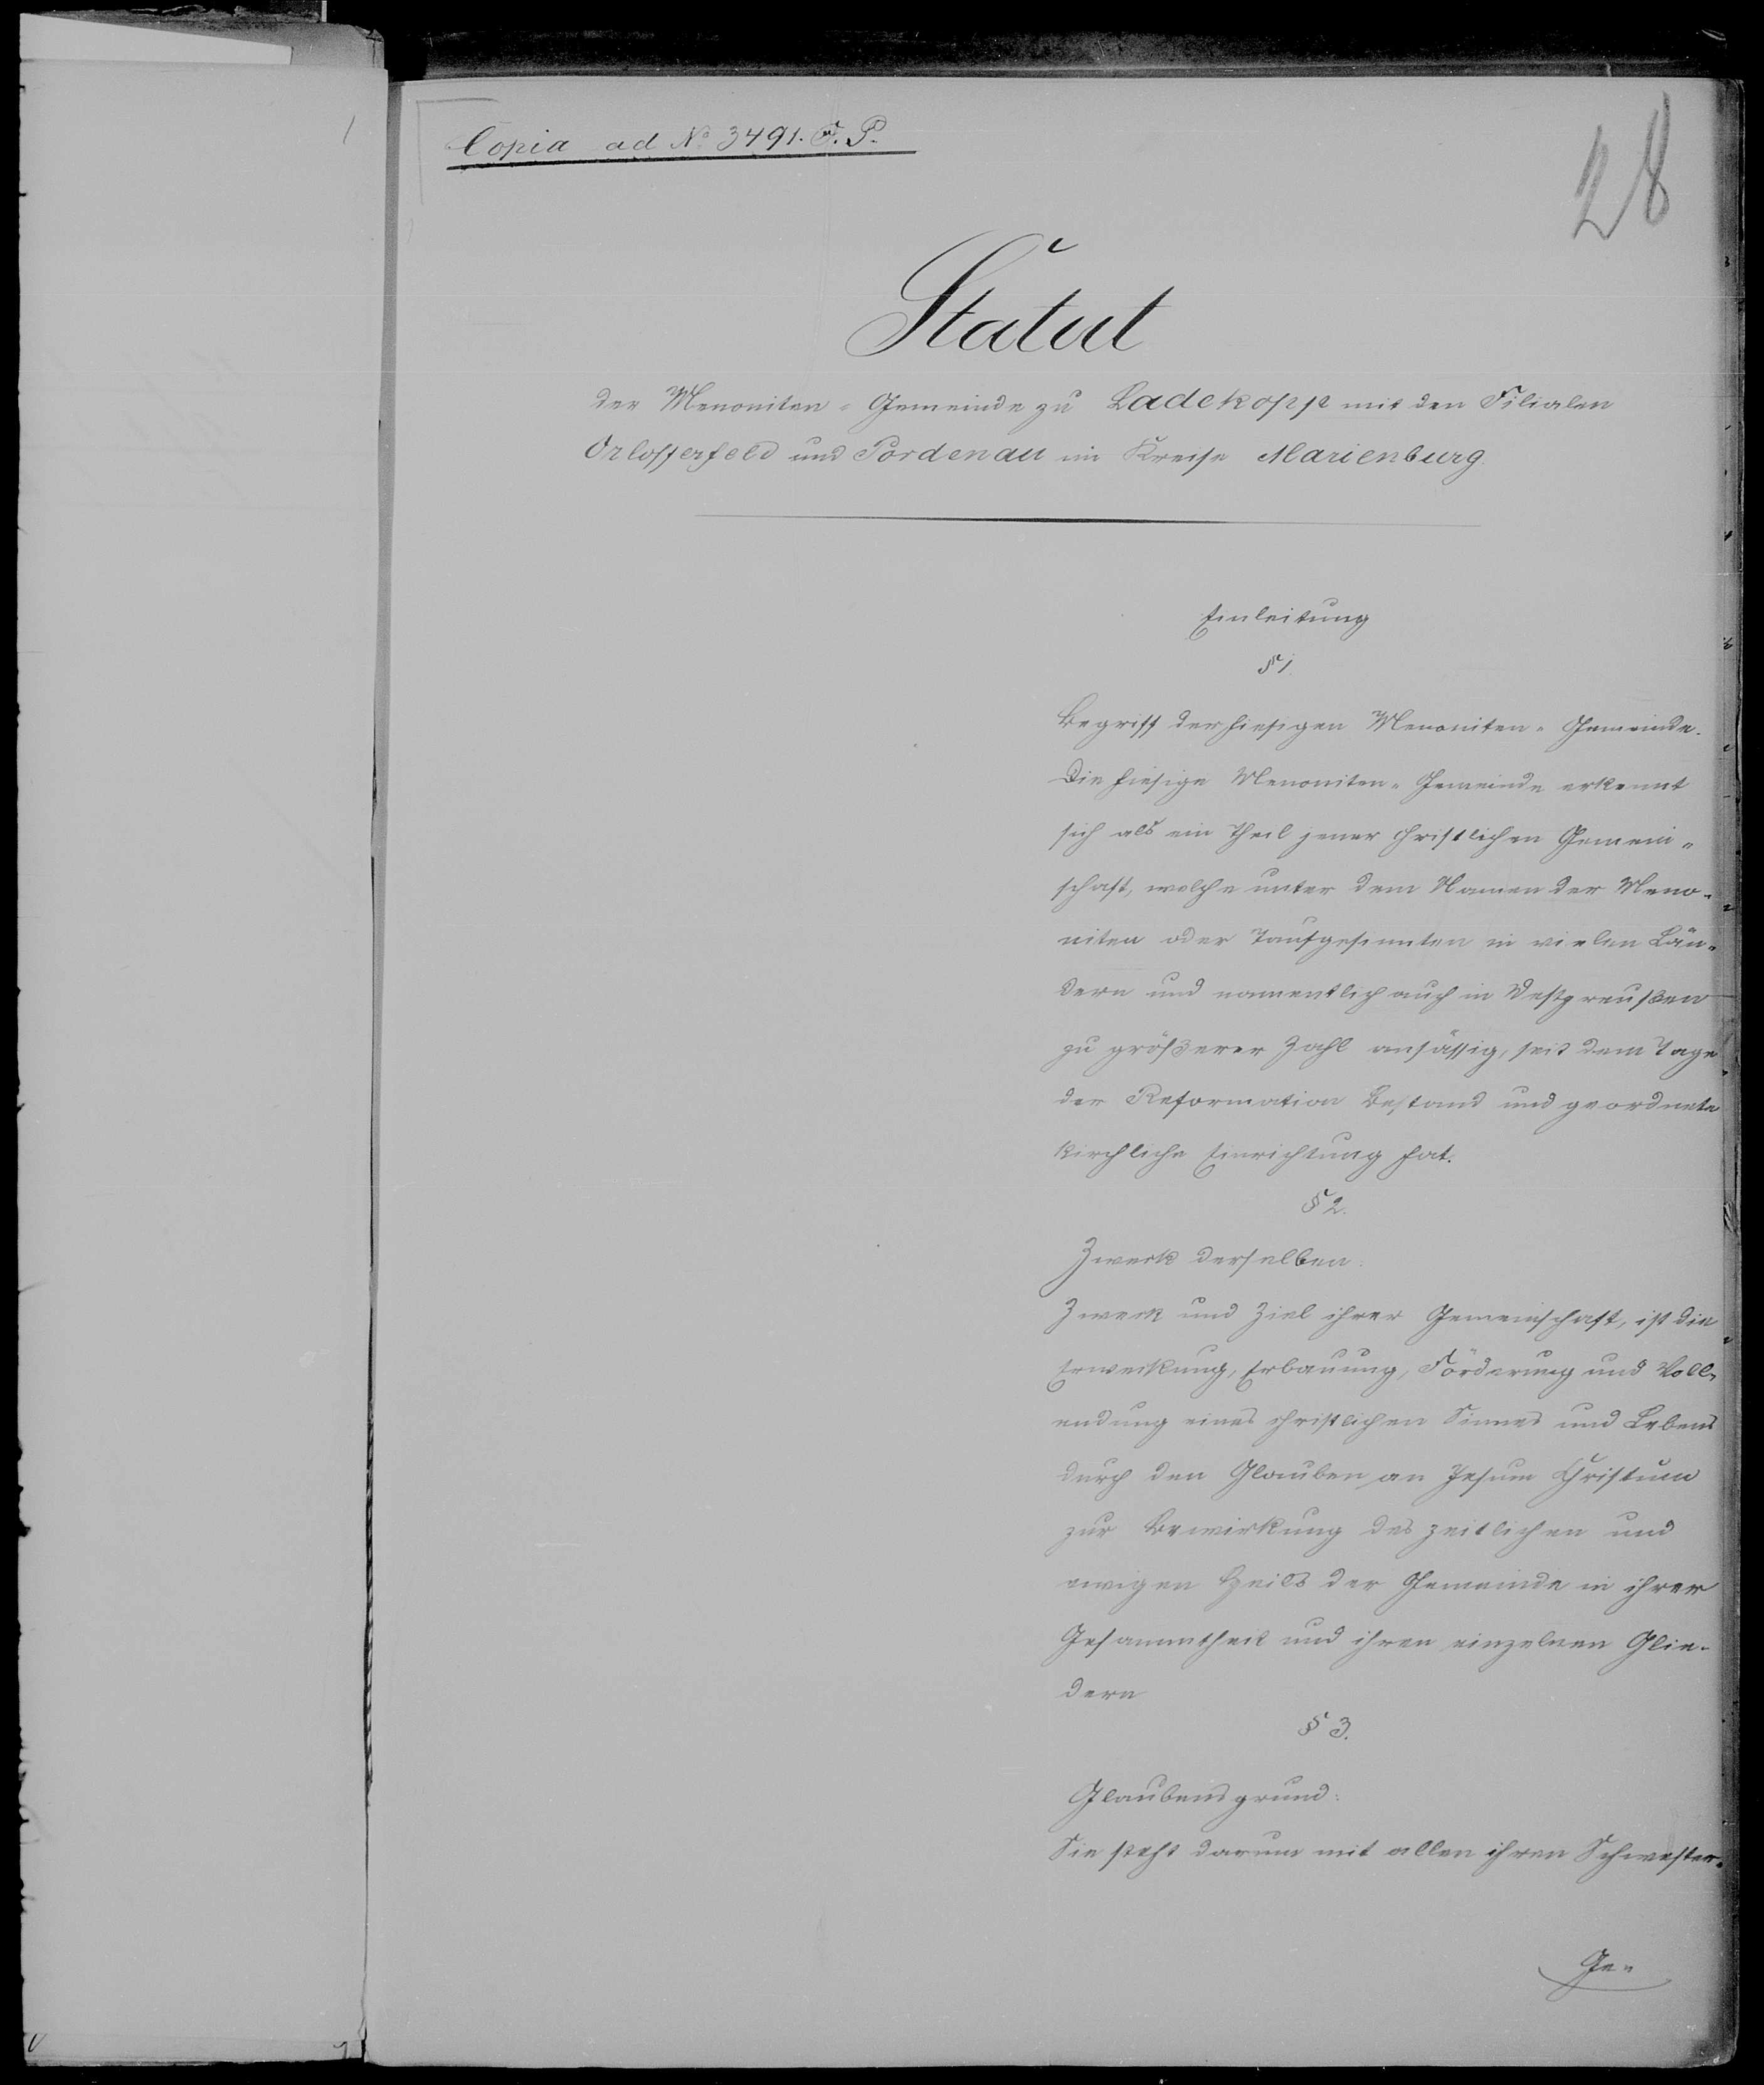 Copia ad No 3491. F. P.
28
Statut
der Menoniten-Gemeinde zu Ladekopp mit den Filialen
Orlofferfeld und Pordenau im Kreise Marienburg.
Einleitung
§ 1.
Begriff der hiesigen Menoniten-Gemeinde.
Die hiesige Menoniten-Gemeinde erkennt
sich als ein Theil jener christlichen Gemein-
schaft, welche unter dem Namen der Meno-
niten oder Taufgesinnten in vielen Län-
dern und namentlich auch in Westpreußen
zu größerer Zahl ansässig, seit dem Tage
der Reformation Bestand und geordnete
kirchliche Einrichtung hat.
§ 2.
Zweck derselben.
Zweck und Ziel ihrer Gemeinschaft, ist die
Erweckung, Erbauung, Förderung und Voll-
endung eines christlichen Sinnes und Lebens
durch den Glauben an Jesum Christum
zur Bewirkung des zeitlichen und
ewigen Heils der Gemeinde in ihrer
Gesammtheit und ihren einzelnen Glie-
dern
§ 3.
Glaubensgrund.
Sie steht darum mit allen ihren Schwester-
Ge-